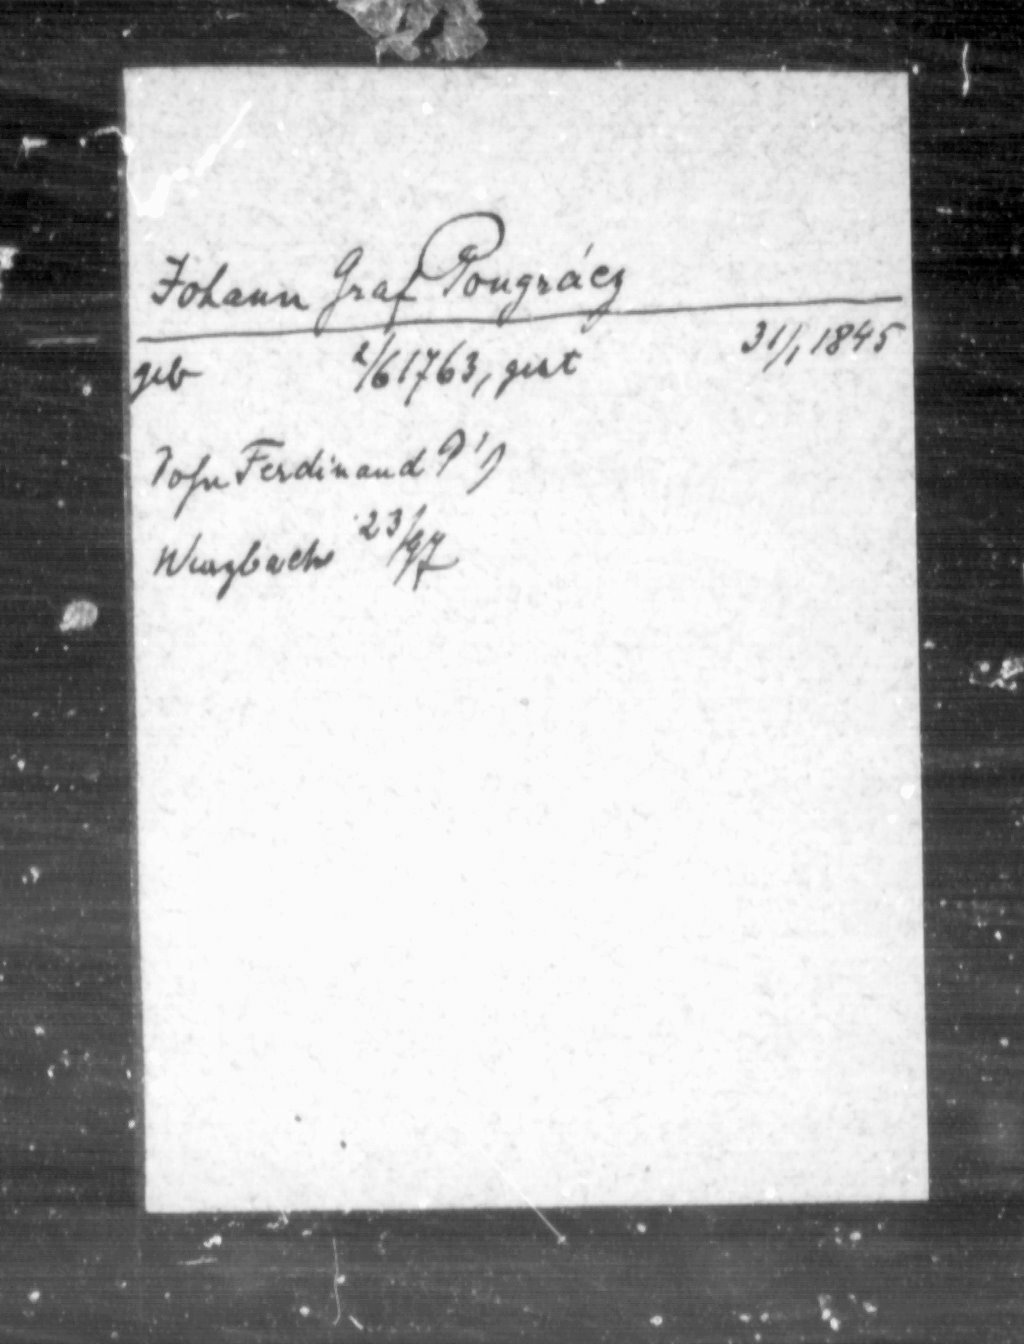 Johann Graf Pongrácz
geb 2/6 1763, gest 31/1 1845
Sohn Ferdinand P's
Wurzbach 23/97